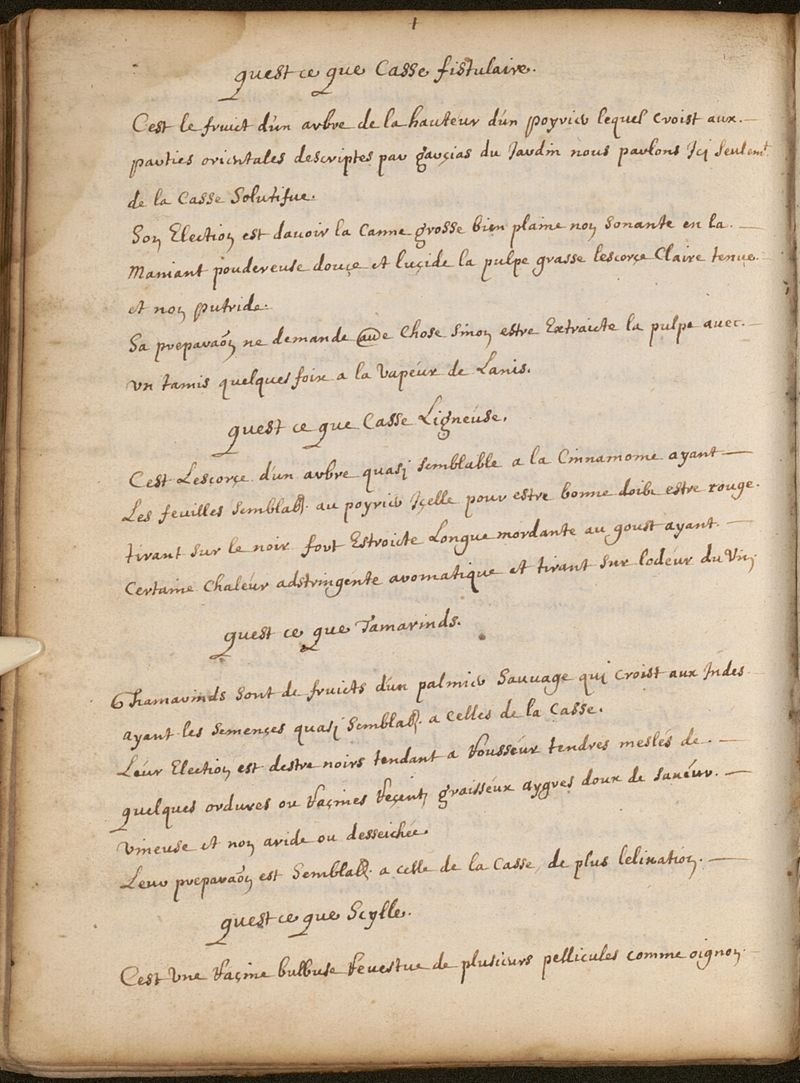 1
quest ce que Casse fistulaire.
Cest le fruict dún arbre de la hauteur dún poyrier lequel croist aux
parties orientales descriptes par garçias du Jardin nous parlons Içi seulemt
de la Casse solutifue.
Son Election est davoir la Canne grosse bien plaine non sonante en la
Maniant poudereuse douçe et luçide la pulpe grasse lescorçe Claire tenue
et non putride.
Sa preparaon ne demande aue Chose sinon estre Extraicte la pulpe avec
vn tamis quelques foix a la Vapeur de Lanis.
quest ce que Casse Ligneuse.
Cest Lescorçe dún arbre quasi semblable a la Cinnamome ayant
Les feuilles semblab. au poyrier Içelle pour estre bonne doibt estre rouge
tirant sur le noir fort Estroicte Longue mordante au goust ayant
Certaine Chaleur adstringente aromatique et tirant sur lodeur du Vin
quest ce que Tamarinds.
Thamarinds sont de fruicts dún palmier Sauvage qui croist aux Indes
ayant les semençes quasi semblab. a Celles de la Casse.
Leur Election est destre noirs tendant a rousseur tendres meslés de
quelques ordures ou raçines reçents graisseux aygres doux de saveur
vineuse et non aride ou desseichée
Leur preparaon est Semblab. a celle de la Casse, de plus lelixation.
quest ce que Scylle.
Cest Vne raçine bulbuse reuestue de plusieurs pellicules comme oignon